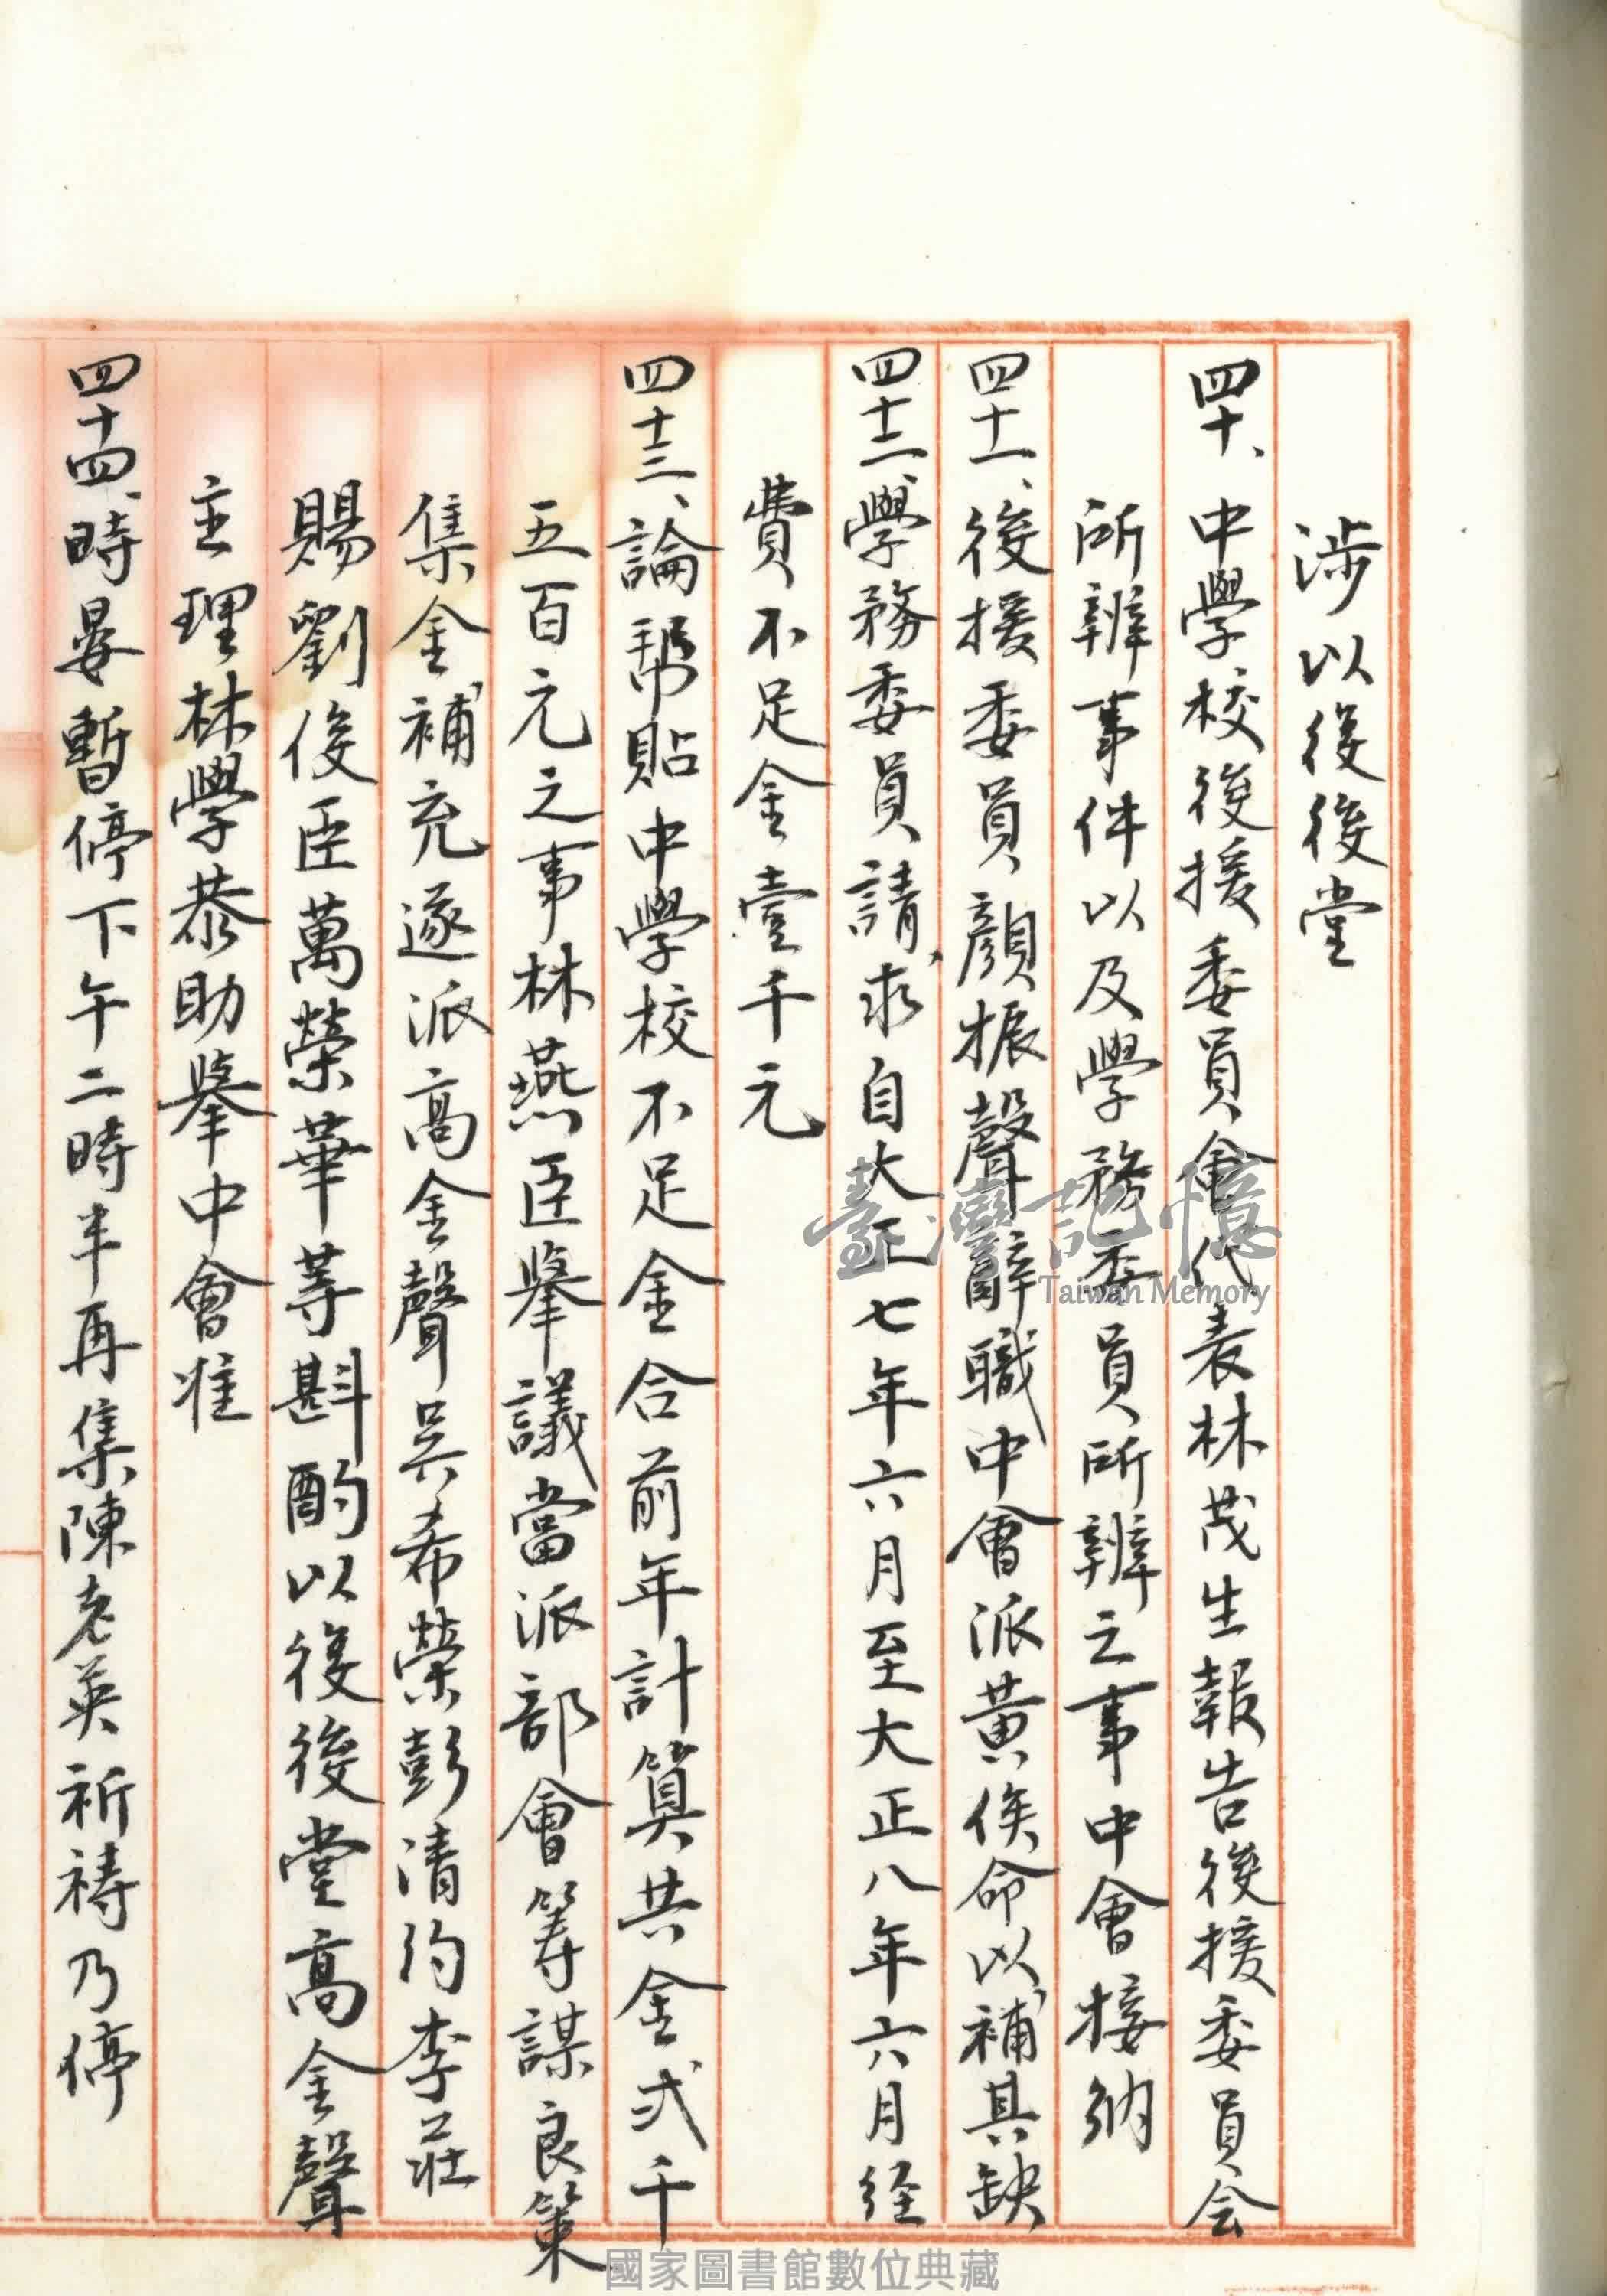 涉以後後堂
四十、中學校後援委員會代表林茂生報告後援委員会
所辨事件以及學務委員所辨之事中會接納
四十一、後援委員顏振聲辭職中會派黃俟命以補其缺
四十二、學務委員請求自大正七年六月至大正八年六月経
費不足金壹千元
四十三、論幇貼中學校不足金合前年計算共金弍千
五百元之事林燕臣舉議當派部會筹謀良策
集金補充遂派高金聲吳希榮彭清約李莊
賜劉俊臣萬榮華等斟酌以後後堂高金聲
主理林學恭助舉中會准
四十四、時晏暫停下午二時半再集陳老英祈禱乃停
臺灣記憶
Taiwan Memory
國家圖書館數位典藏